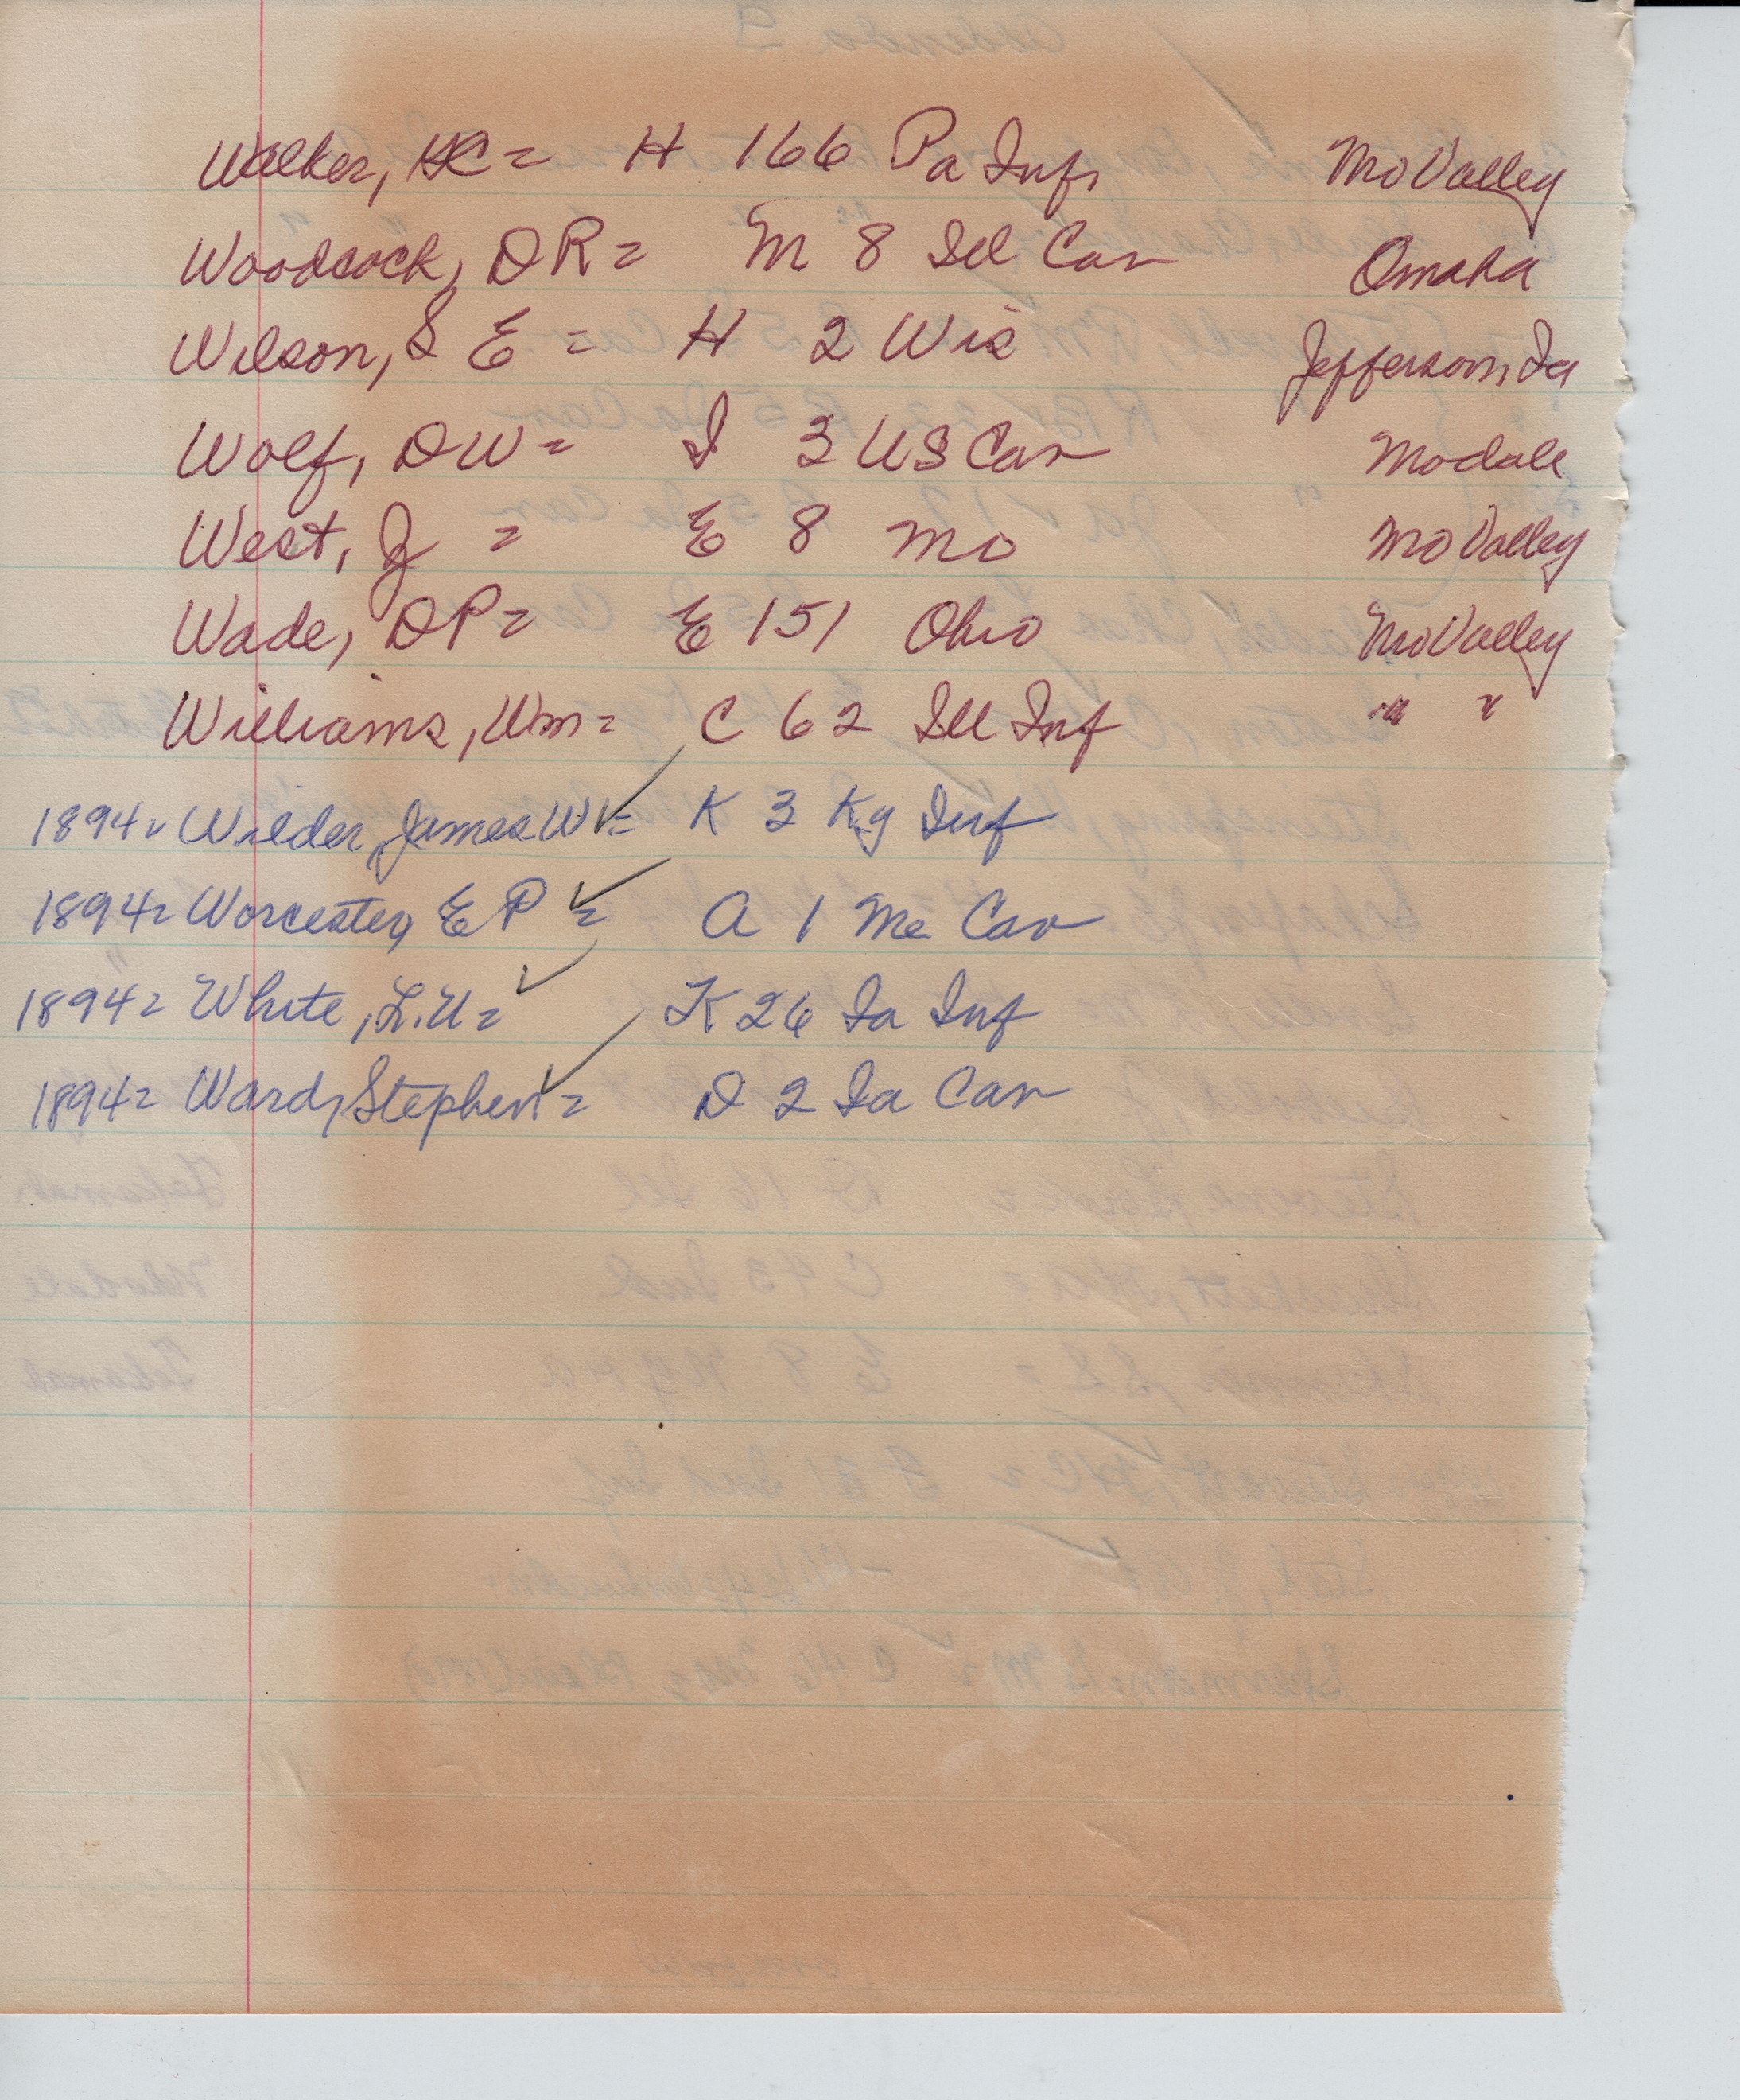 Walker, HC = H 166 Pa Inf, Mo Valley
Woodcock, DR = M 8 Ill Cav Omaha
Wilson, S E = H 2 Wis Jefferson, Ia
Wolf, DW = I 3 US Cav Modale
West, J = E 8 Mo Mo Valley
Wade, DP = E 151 Ohio Mo Valley
Williams, Wm = C 62 Ill Inf " "
1894 = Wilder, James W = K 3 Ky Inf
1894 = Worcester, E P = A 1 Me Cav
1894 = White, L.U = K 26 Ia Inf
1894 = Ward, Stephen = D 2 Ia Cav